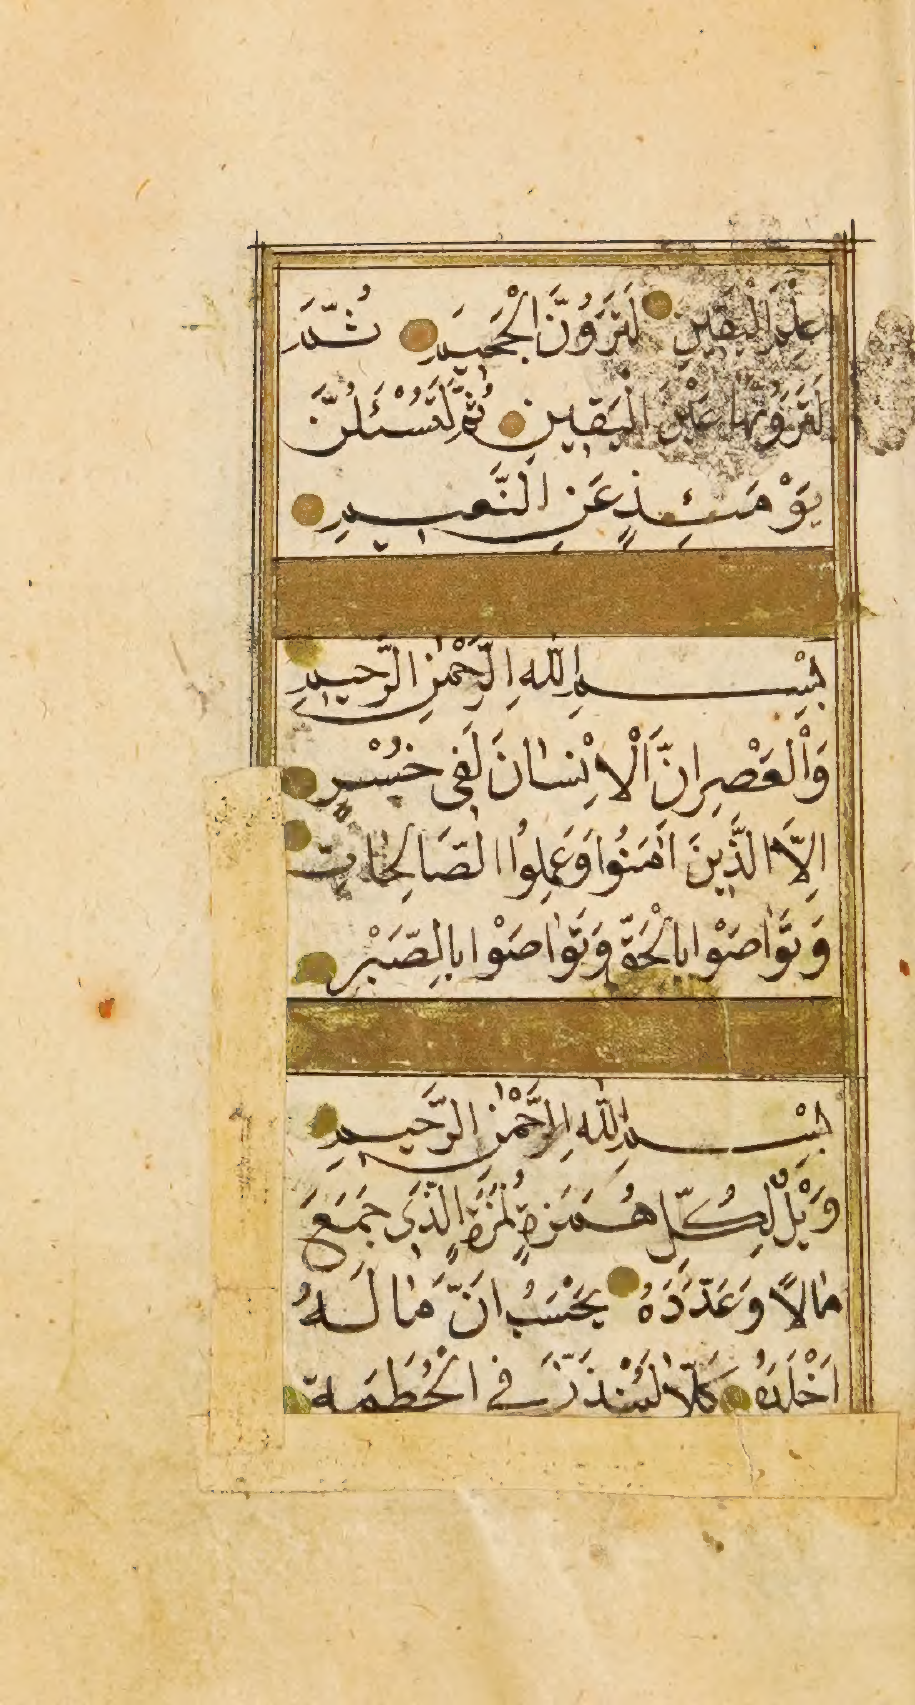 عِلْمَ الْيَقِينِ لَتَرَوُنَّ الْجَحِيمَ ثُمَّ
لَتَرَوُنَّهَا عَيْنَ الْيَقِينِ ثُمَّ لَتُسْئَلُنَّ
يَوْمَئِذٍ عَنِ النَّعِيمِ
بِسْمِ اللّٰهِ الرَّحْمٰنِ الرَّحِيمِ
وَالْعَصْرِ اِنَّ الْاِنْسَانَ لَفِي خُسْرٍ
اِلَّا الَّذِينَ اٰمَنُوا وَعَمِلُوا الصَّالِحَاتِ
وَتَوَاصَوْا بِالْحَقِّ وَتَوَاصَوْا بِالصَّبْرِ
بِسْمِ اللّٰهِ الرَّحْمٰنِ الرَّحِيمِ
وَيْلٌ لِكُلِّ هُمَزَةٍ لُمَزَةٍ الَّذِي جَمَعَ
مَالًا وَعَدَّدَهُ يَحْسَبُ اَنَّ مَا لَهُ
اَخْلَدَهُ كَلَّا لَيُنْبَذَنَّ فِي الْحُطَمَةِ